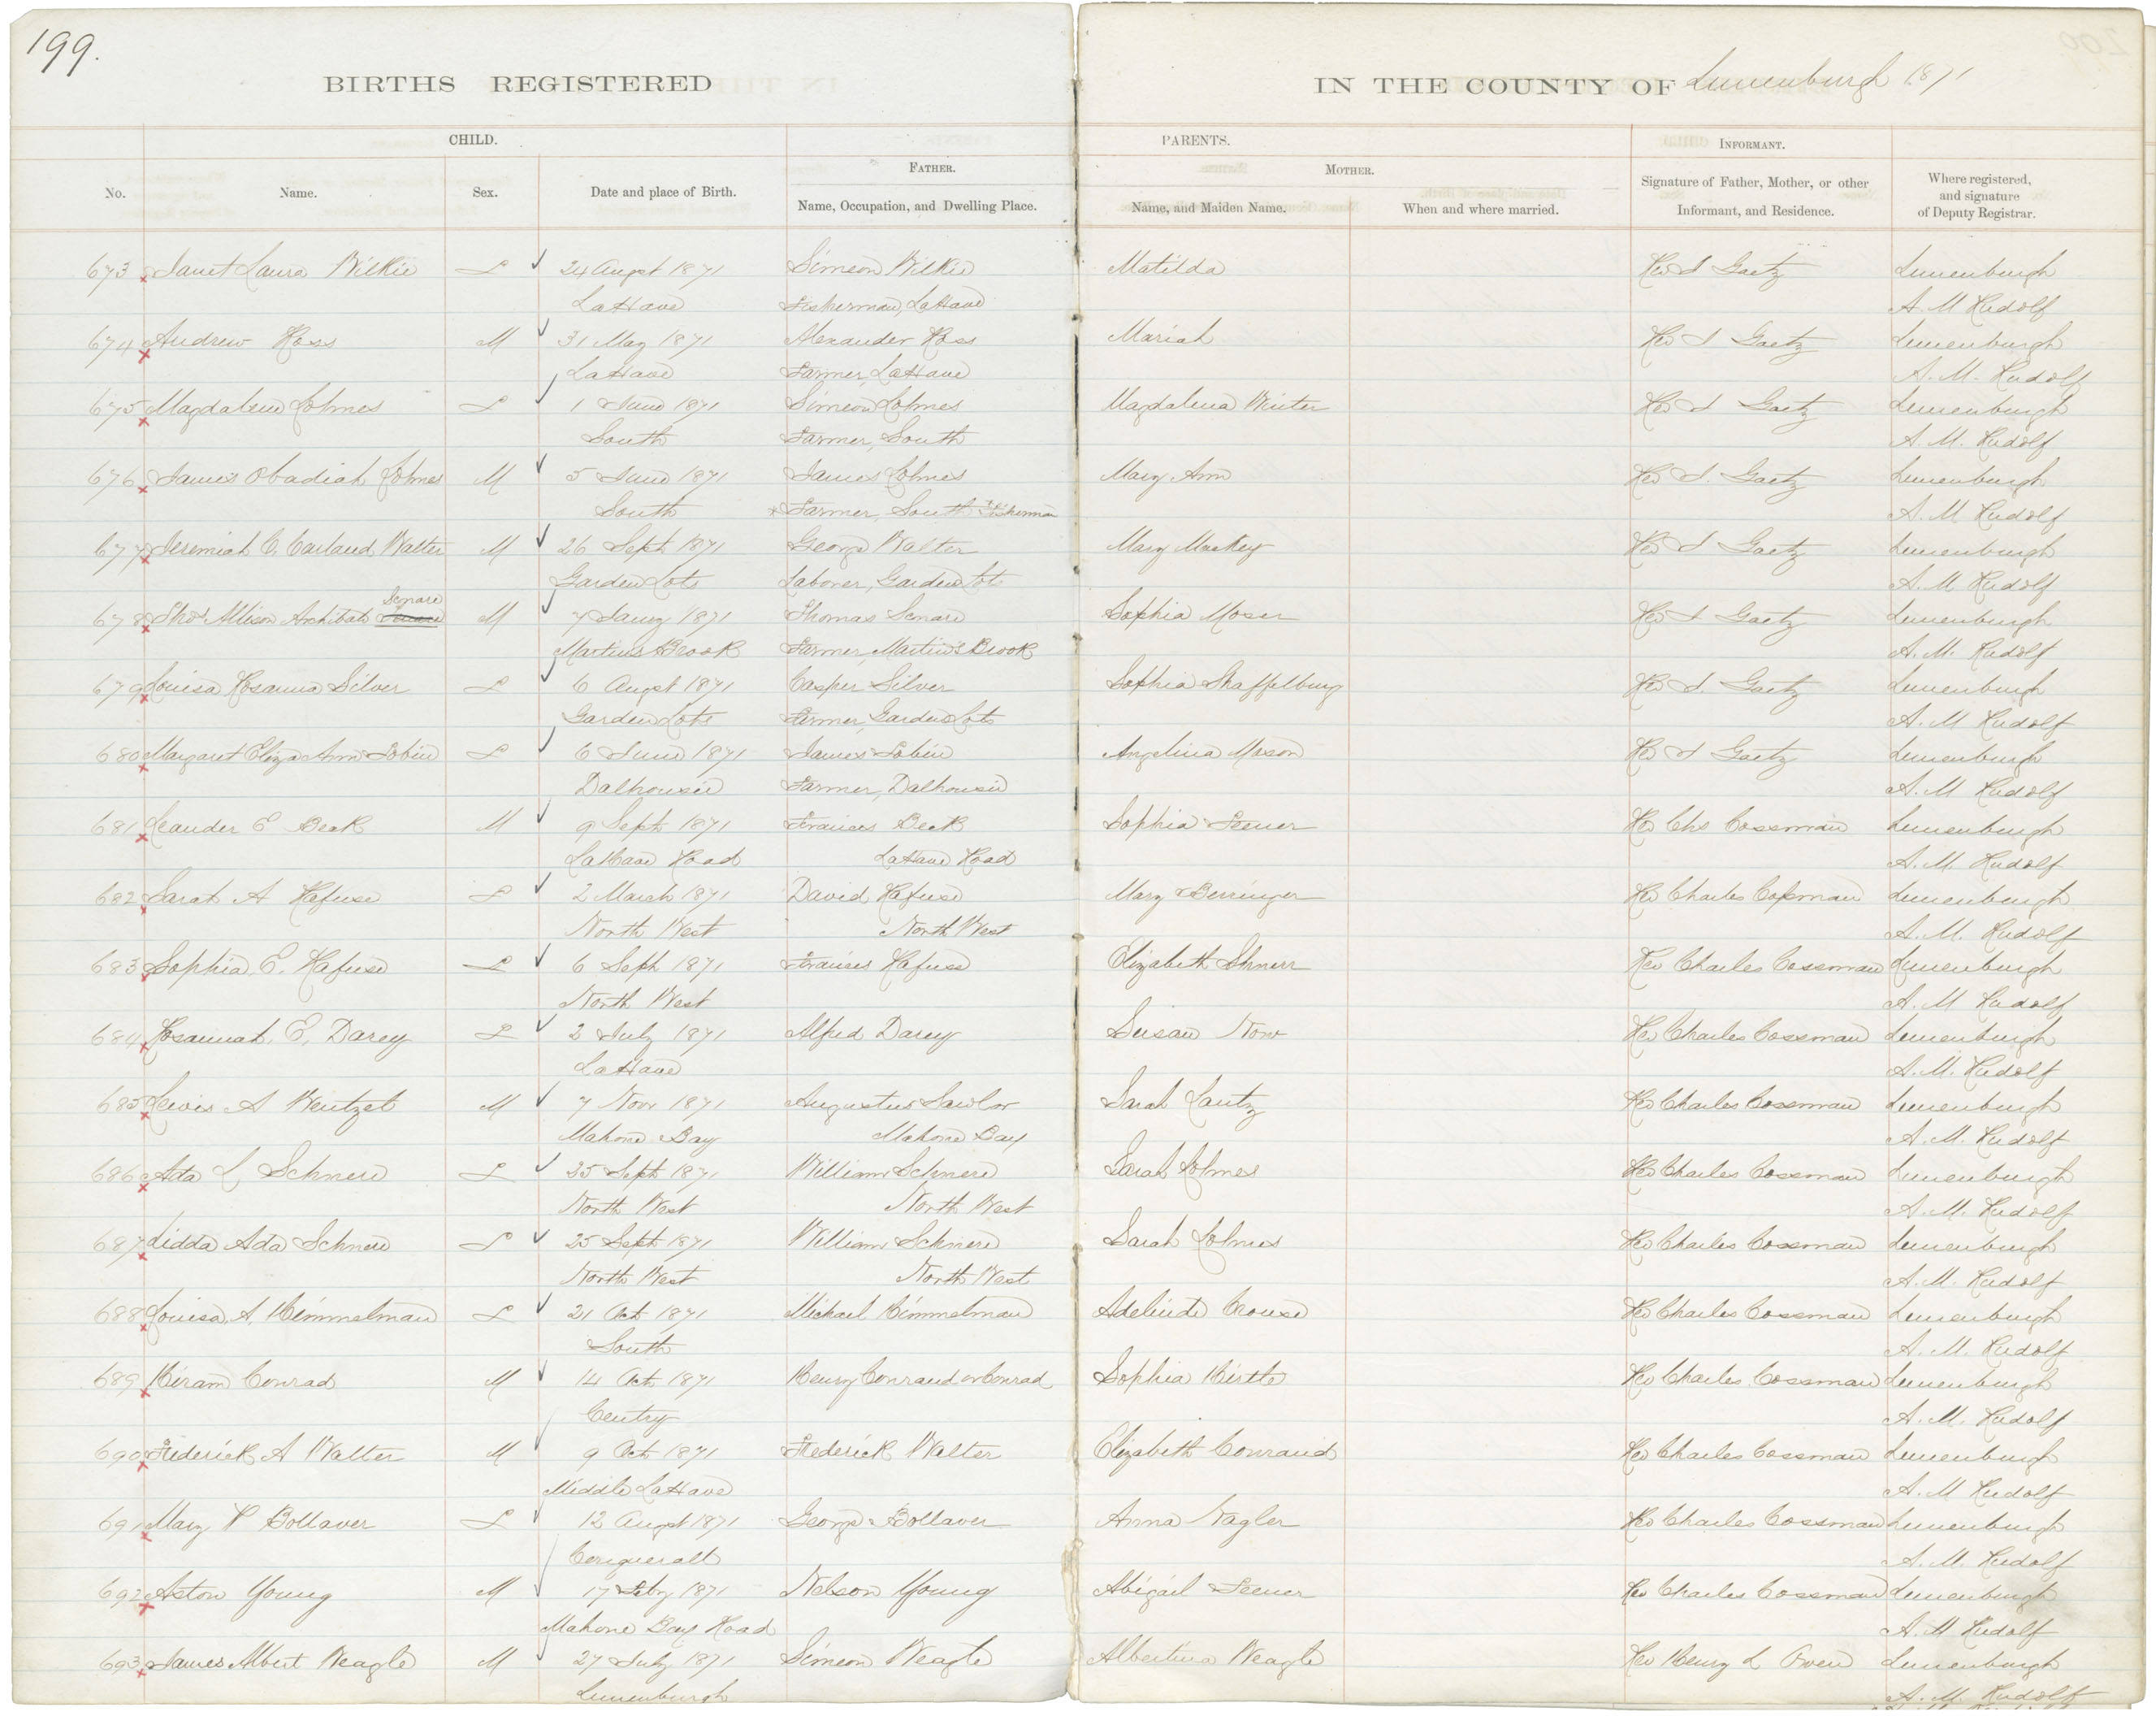 199.
BIRTHS REGISTERED IN THE COUNTY OF Lunenburgh 1871
CHILD. PARENTS. INFORMANT.
FATHER. MOTHER.
No. Name. Sex. Date and place of Birth. Name, Occupation, and Dwelling Place. Name, and Maiden Name. When and where married. Signature of Father, Mother, or other Informant, and Residence. Where registered, and signature of Deputy Registrar.
673 Janet Laura Wilkie F 24 Augst 1871 Simeon Wilkie Matilda Rev J Gaetz Lunenburgh
LaHave Fisherman, LaHave A. M Rudolf
674 Andrew Ross M 31 May 1871 Alexander Ross Mariah Rev J Gaetz Lunenburgh
LaHave Farmer, LaHave A. M. Rudolf
675 Magdalene Lohnes F 1 June 1871 Simeon Lohnes Magdalena Winter Rev J Gaetz Lunenburgh
South Farmer, South A. M. Rudolf
676 James Obadiah Lohnes M 5 June 1871 James Lohnes Mary Ann Rev J. Gaetz Lunenburgh
South Farmer, South Fisherman A. M. Rudolf
677 Jeremiah C. Carland Walter M 26 Sept 1871 George Walter Mary Mackey Rev J Gaetz Lunenburgh
Garden Lots Laborer, Garden Lots A. M Rudolf
678 Thos Allison Archibald Senare M 7 Jany 1871 Thomas Senare Sophia Moser Rev J Gaetz Lunenburgh
Martins Brook Farmer, Martin's Brook A. M. Rudolf
679 Louisa Rosanna Silver F 6 Augst 1871 Casper Silver Sophia Shaffelburg Rev J. Gaetz Lunenburgh
Garden Lots Farmer, Garden Lots A. M Rudolf
680 Margaret Eliza Ann Tobin F 6 June 1871 James Tobin Angelina Mason Rev J Gaetz Lunenburgh
Dalhousie Farmer, Dalhousie A. M Rudolf
681 Leander E Beck M 9 Sept 1871 Francis Beck Sophia Feener Rev Chs Cossman Lunenburgh
LaHave Road LaHave Road A. M. Rudolf
682 Sarah A Hafuse F 2 March 1871 David Hafuse Mary Berringer Rev Charles Cossman Lunenburgh
North West North West A. M. Rudolf
683 Sophia E. Hafuse F 6 Sept 1871 Francis Hafuse Elizabeth Shnerr Rev Charles Cossman Lunenburgh
North West A. M Rudolf
684 Rosannah E. Darey F 2 July 1871 Alfred Darey Susan Now Rev Charles Cossman Lunenburgh
LaHave A. M. Rudolf
685 Lewis A Wentzel M 7 Novr 1871 Augustus Sawlor Sarah Lantz Rev Charles Cossman Lunenburgh
Mahone Bay Mahone Bay A. M. Rudolf
686 Ada L Schnere F 25 Sept 1871 William Schnere Sarah Lohnes Rev Charles Cossman Lunenburgh
North West North West A. M. Rudolf
687 Lidda Ada Schnere F 25 Sept 1871 William Schnere Sarah Lohnes Rev Charles Cossman Lunenburgh
North West North West A. M. Rudolf
688 Louisa A. Himmelman F 21 Oct 1871 Michael Himmelman Adelinde Crouse Rev Charles Cossman Lunenburgh
South A. M. Rudolf
689 Hiram Conrad M 14 Oct 1871 Henry Conraud or Conrad Sophia Hirtle Rev Charles Cossman Lunenburgh
Centry A. M. Rudolf
690 Frederick A Walter M 9 Oct 1871 Frederick Walter Elizabeth Conraud Rev Charles Cossman Lunenburgh
Middle LaHave A. M Rudolf
691 Mary P Bollaver F 12 Augst 1871 George Bollaver Anna Nagler Rev Charles Cossman Lunenburgh
A. M. Rudolf
692 Aston Young M 17 Feby 1871 Nelson Young Abigail Feener Rev Charles Cossman Lunenburgh
Mahone Bay Road A. M Rudolf
693 James Albert Weagle M 27 July 1871 Simeon Weagle Albertina Weagle Rev Henry L Owen Lunenburgh
Lunenburgh A. M. Rudolf